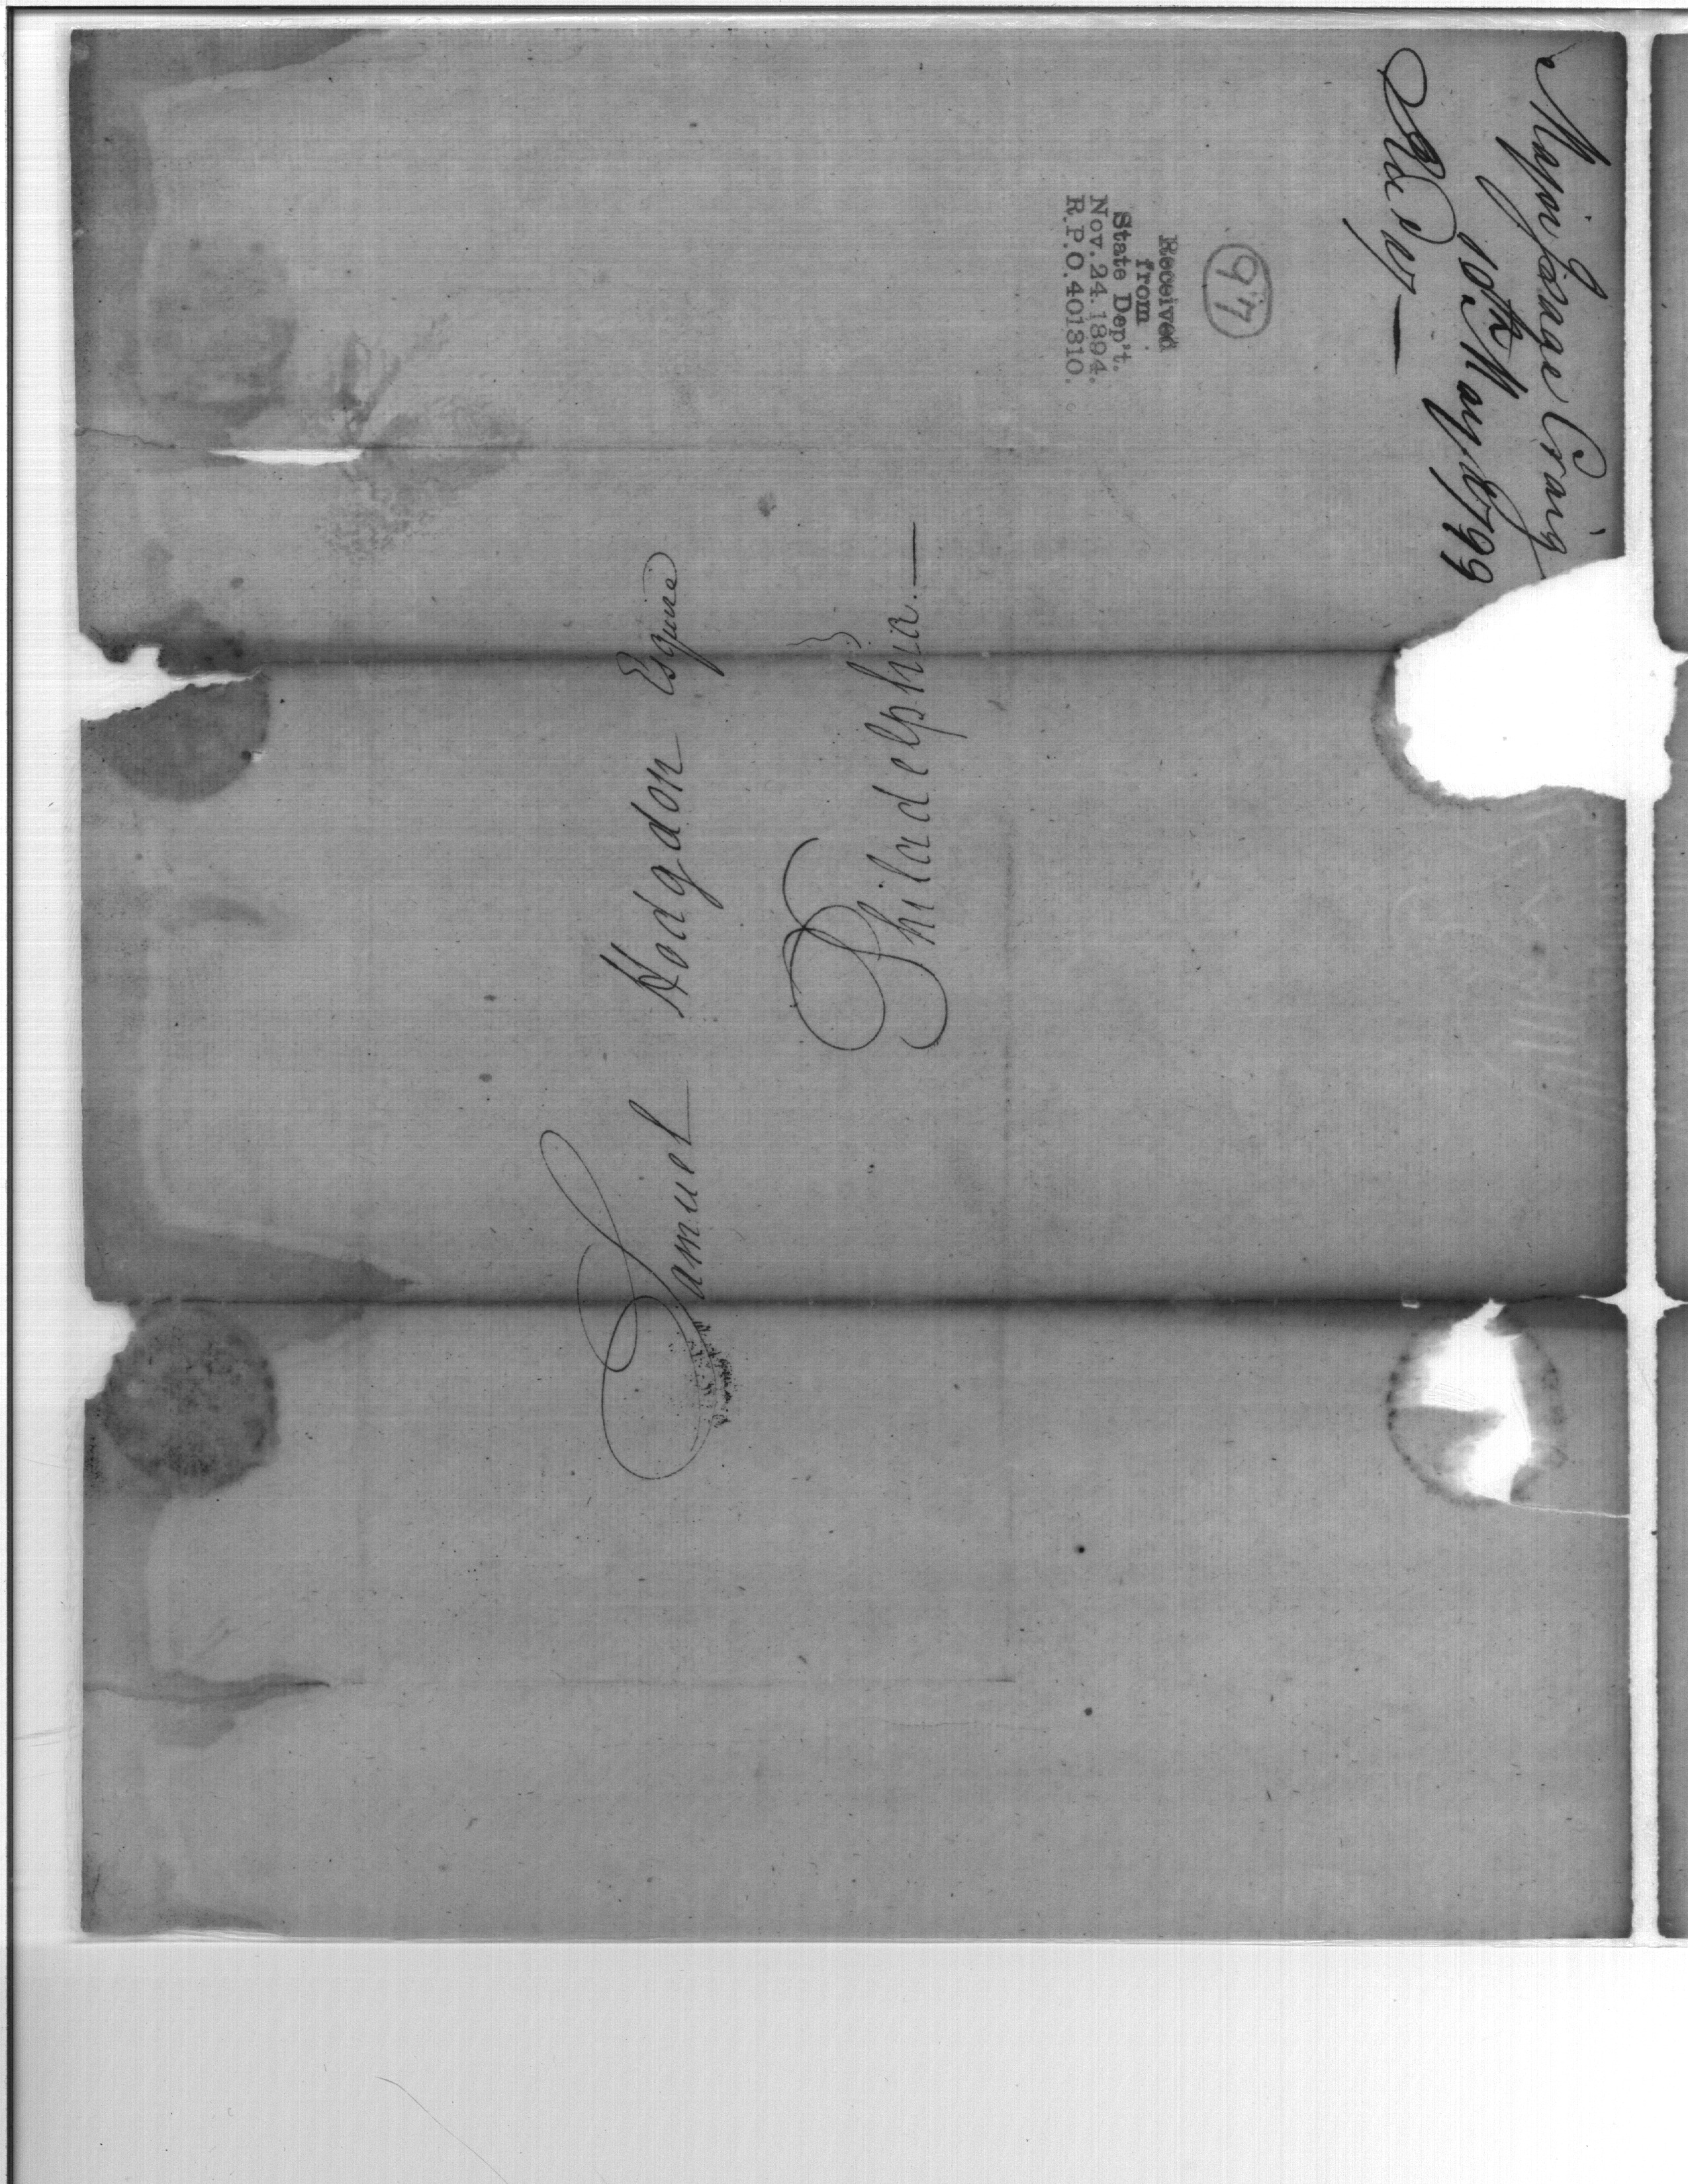 Major Isaac Craig
10th May 1799
Received
from
State Dep't.
Nov. 24. 1894.
R.P.O. 401310.
97
Samuel Hodgdon Esquire
Philadelphia.—